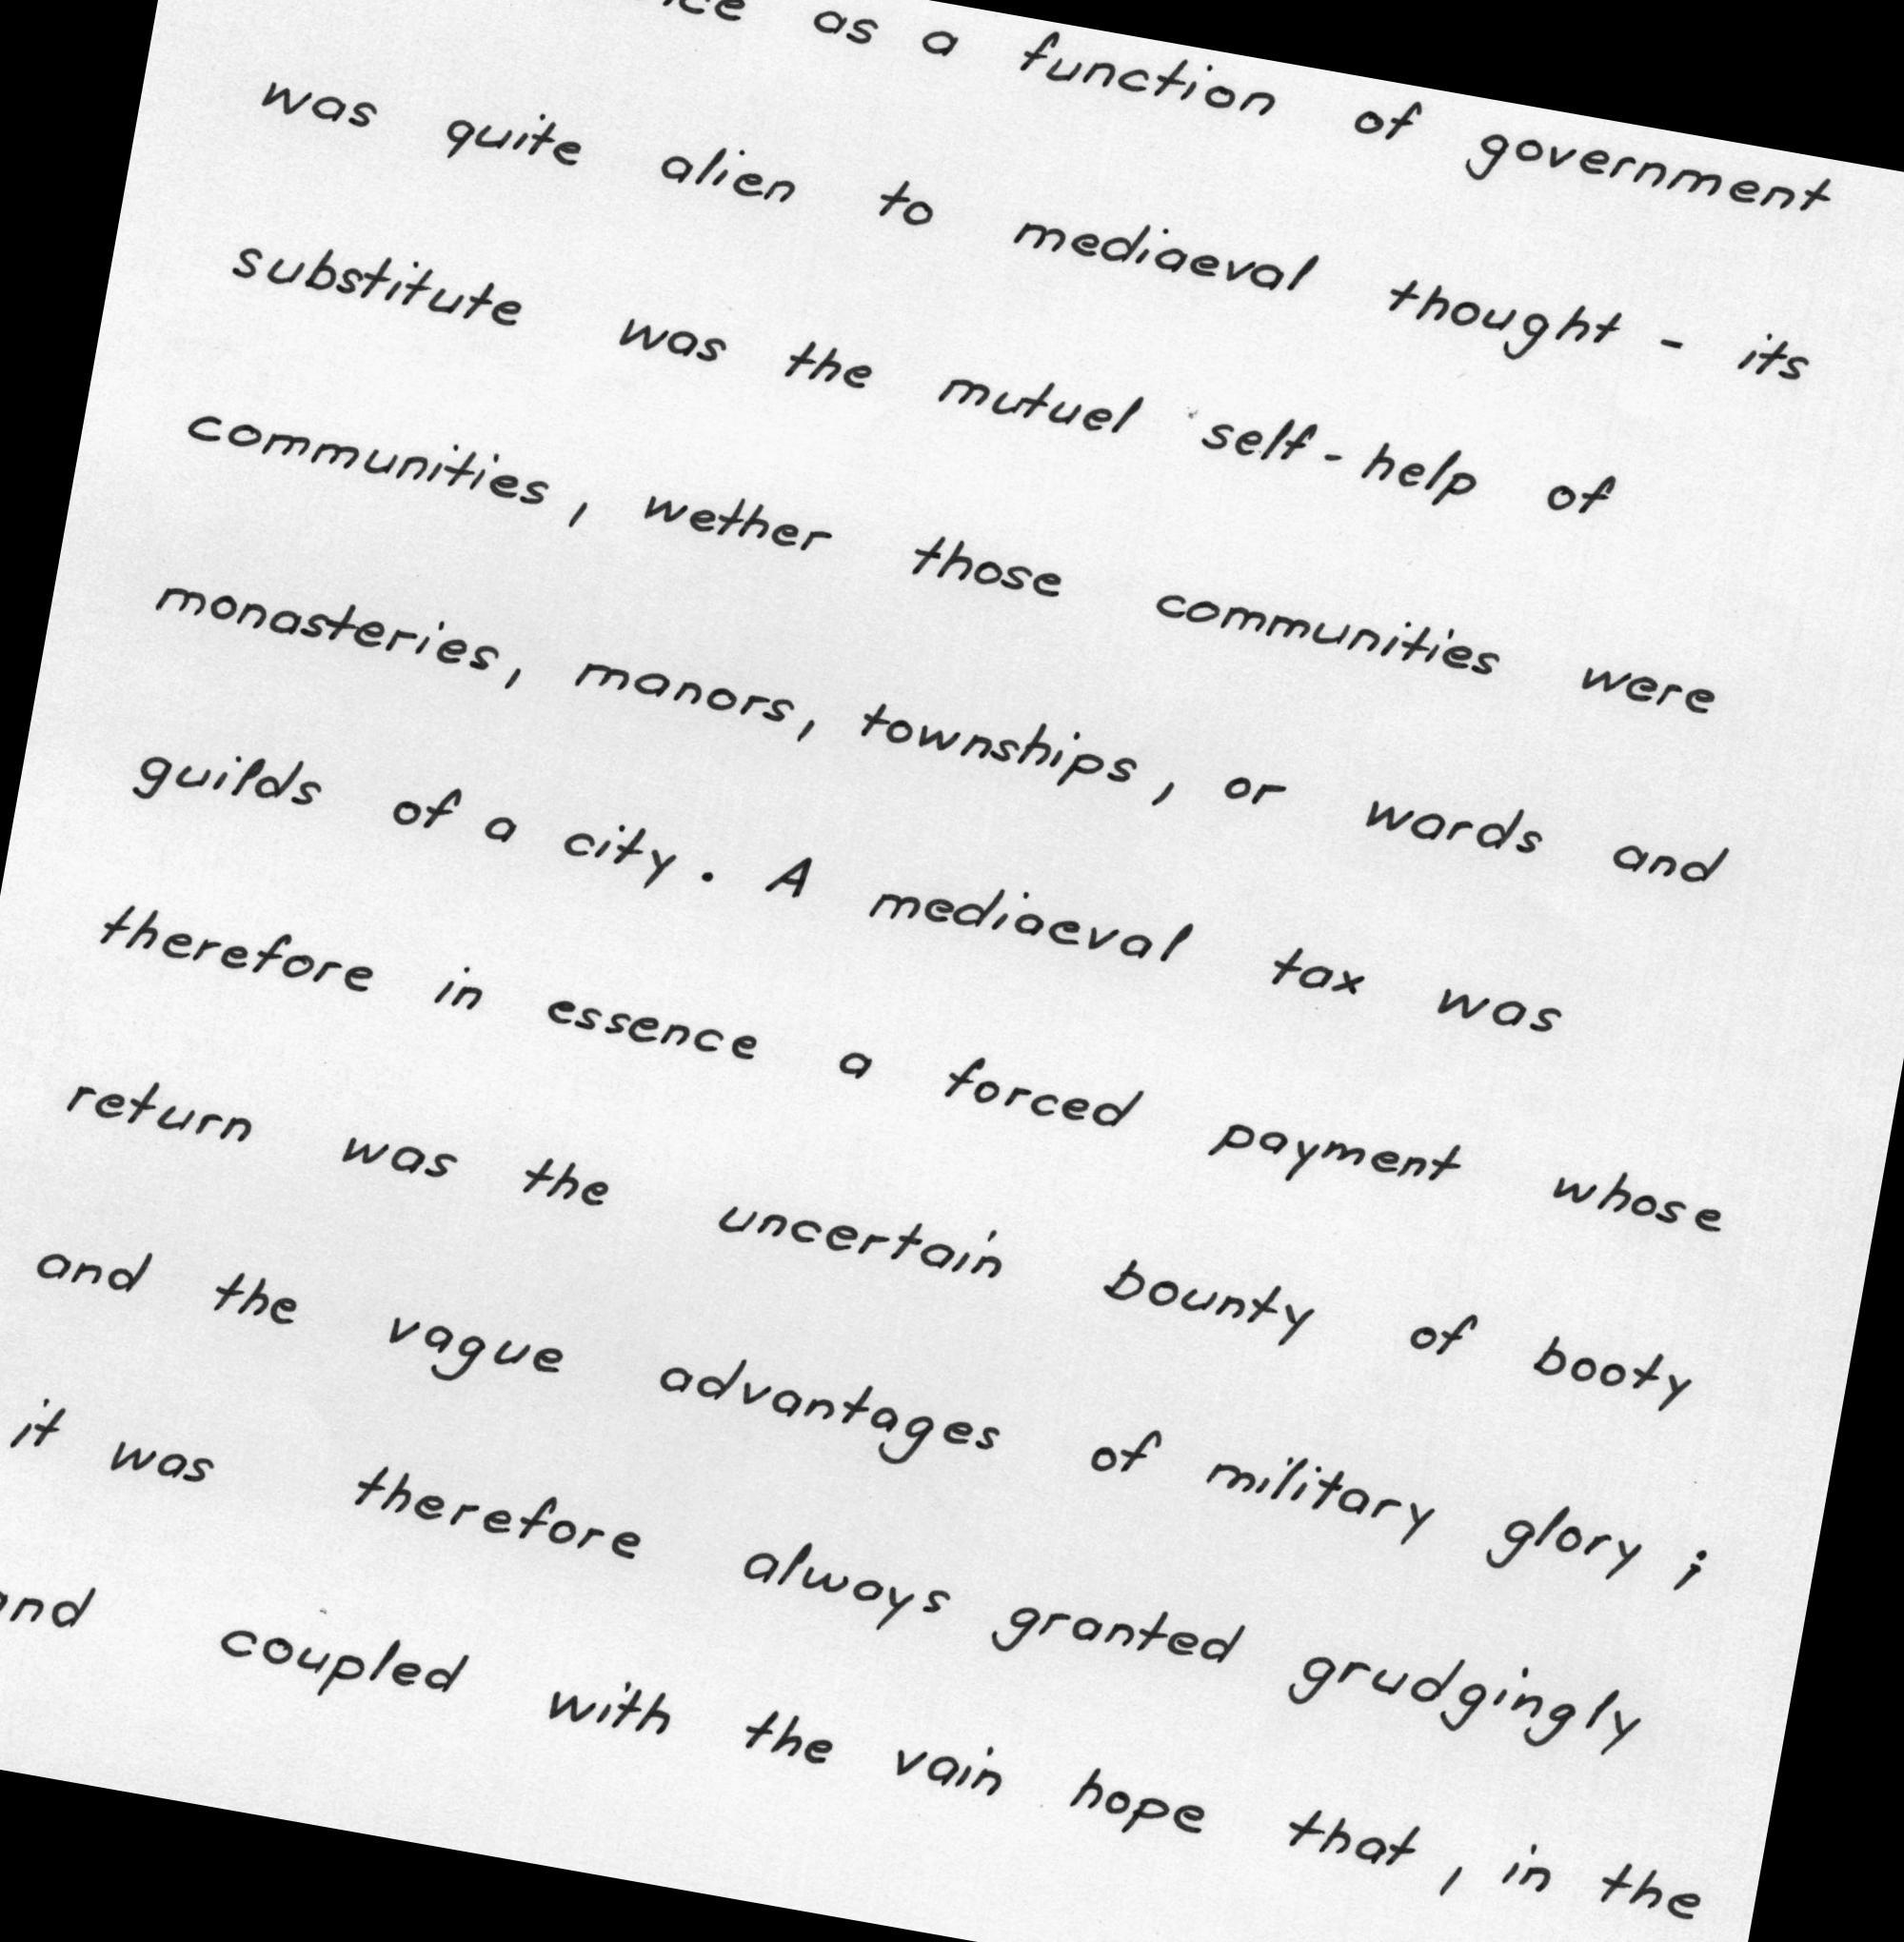 as a function of government
was quite alien to mediaeval thought - its
substitute was the mutuel self-help of
communities, wether those communities were
monasteries, manors, townships, or wards and
guilds of a city. A mediaeval tax was
therefore in essence a forced payment whose
return was the uncertain bounty of booty
and the vague advantages of military glory;
it was therefore always granted grudgingly
and coupled with the vain hope that, in the